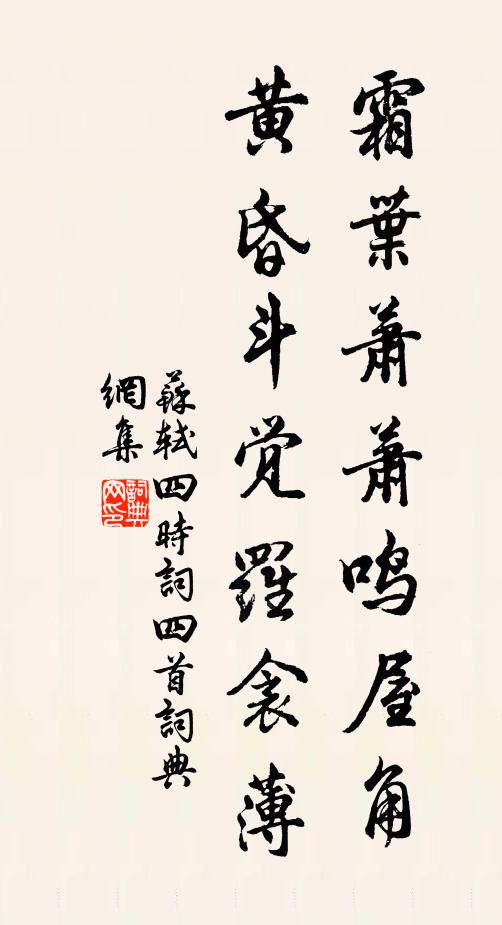 霜葉蕭蕭鳴屋角
黄昏斗覺羅衾薄
蘇軾四時詞四首詞典
網集
詞典
网印